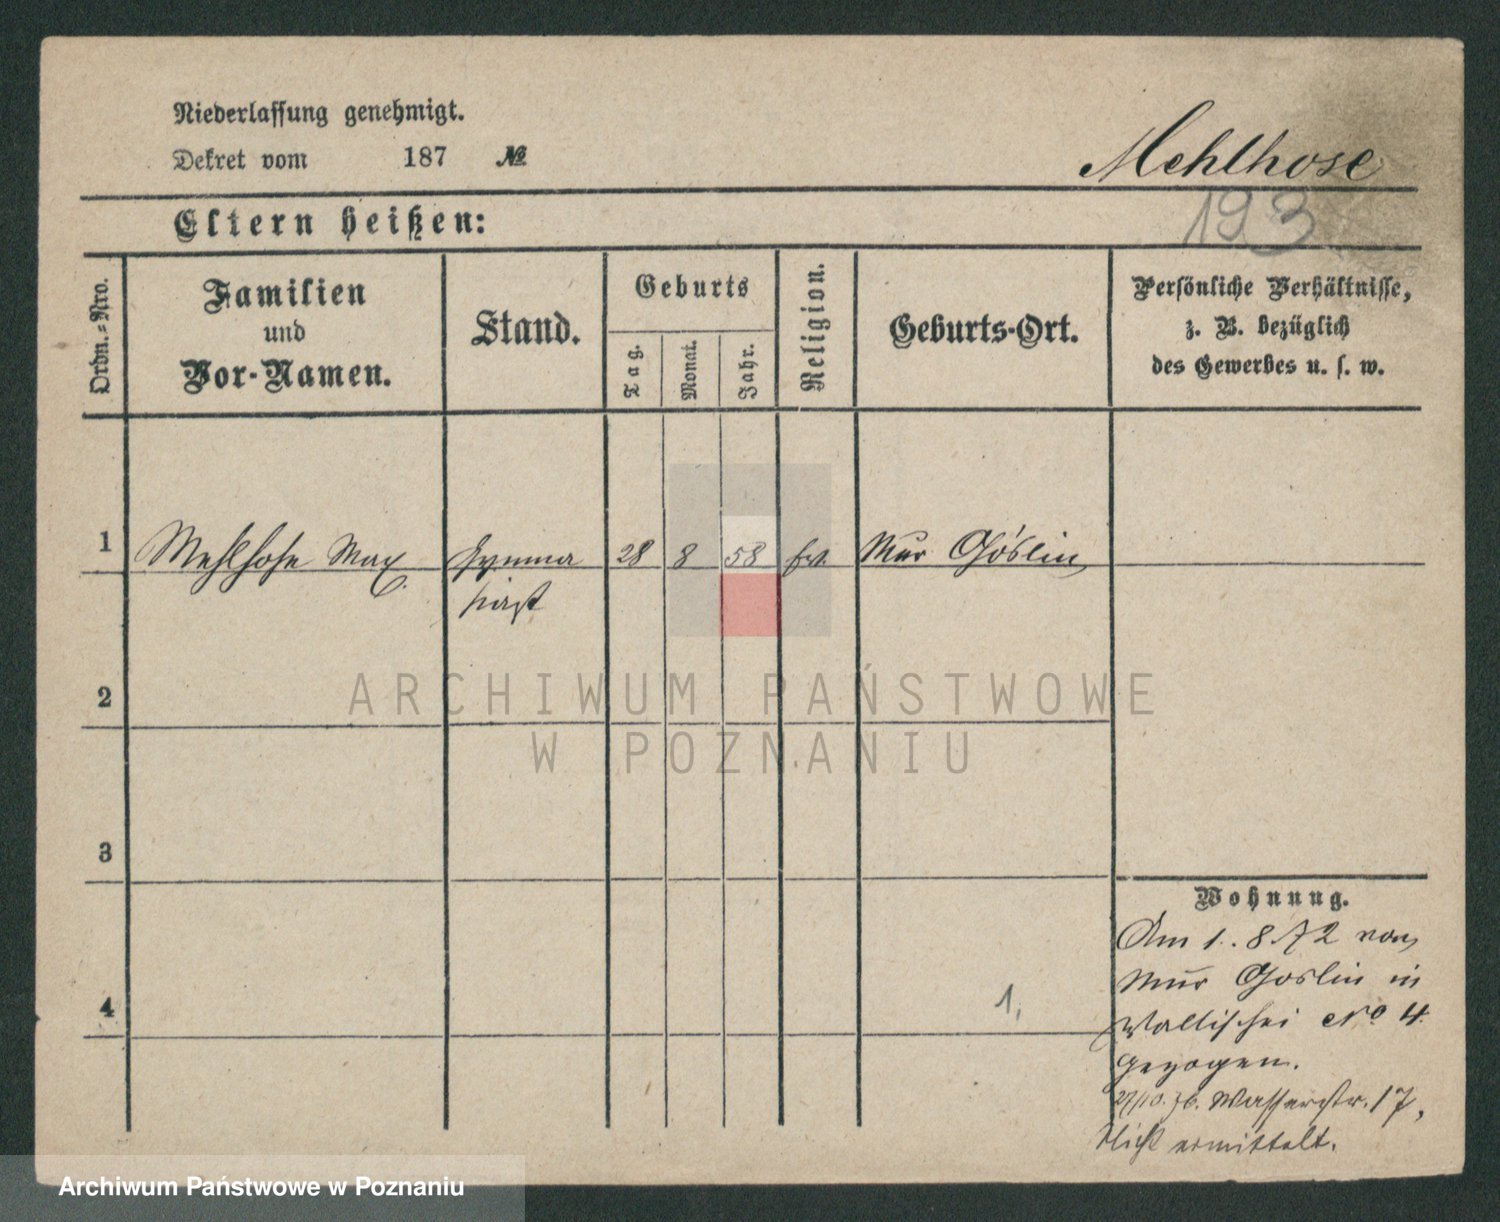 Niederlassung genehmigt.
Dekret vom 187 №
Mehlhose
193
Eltern heißen:
Ordn.-Nro.
Familien
und
Vor-Namen.
Stand.
Geburts
Tag.
Monat.
Jahr.
Religion.
Geburts-Ort.
Persönliche Verhältnisse,
z. B. bezüglich
des Gewerbes u. s. w.
1 Mehlhose Max Gymna 28 8 58 ev. Mur Goslin
siast
2
ARCHIWUM PAŃSTWOWE
W POZNANIU
3
Wohnung.
Am 1. 8 72 von
Mur Goslin in
Wallischei No 4.
gezogen.
4
1,
27/10. 76. Wasserstr. 17,
Nicht ermittelt.
Archiwum Państwowe w Poznaniu